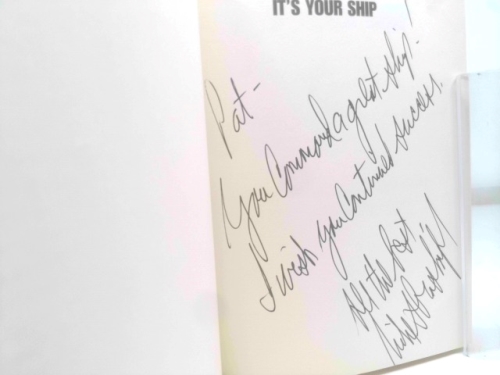 IT'S YOUR SHIP
Pat-
You Command a great ship!
I wish you Continued success.
All the Best
Mike Abrashoff